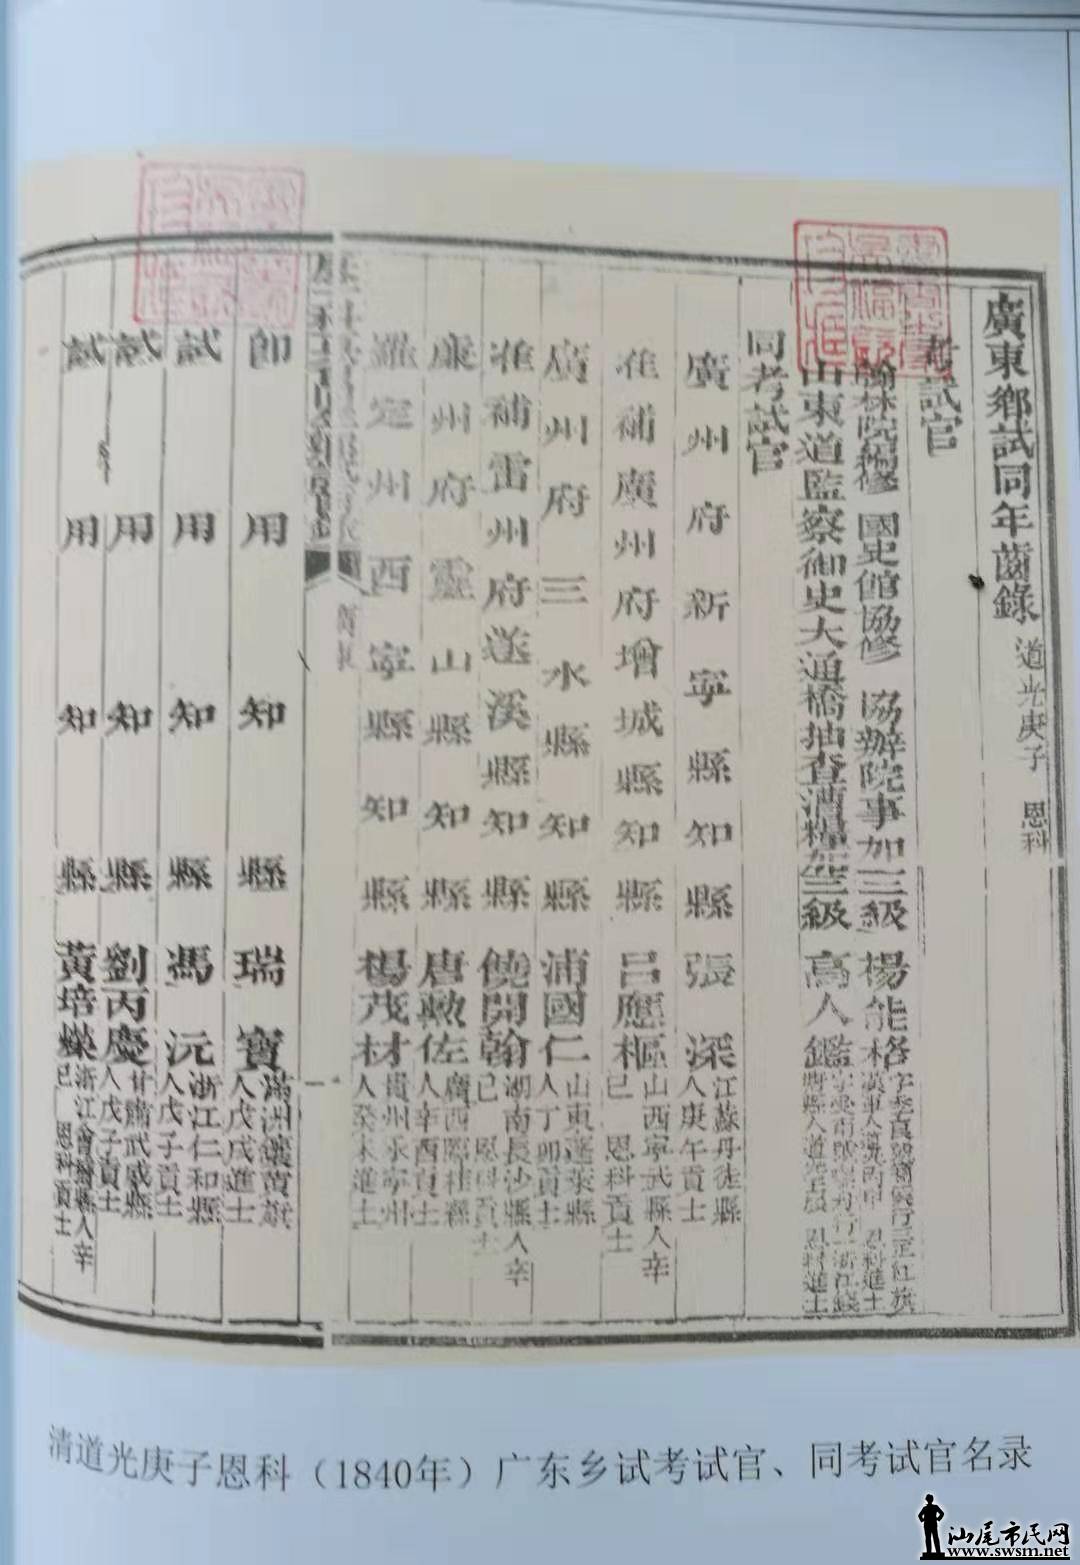 廣東鄉試同年齒錄 道光庚子 恩科
考試官
翰林院編修 國史館協修 協辦院事加三級 楊能格
山東道監察御史大通橋抽查漕糧加三級 高人鑑
同考試官
廣州府新寧縣知縣 張深 江蘇丹徒縣人庚午貢士
准補廣州府增城縣知縣 呂應樞 山西寧武縣人辛巳 恩科貢士
廣州府三水縣知縣 浦國仁 山東蓬萊縣人丁卯貢士
准補雷州府遂溪縣知縣 饒開翰 湖南長沙縣人辛巳 恩科貢士
廉州府靈山縣知縣 唐勲佐 廣西臨桂縣人辛酉貢士
羅定州西寧縣知縣 楊茂材 貴州永寧州人癸未進士
一
即用知縣 瑞寶 滿洲鑲黃旗人戊戌進士
試用知縣 馮沅 浙江仁和縣人戊子貢士
試用知縣 劉丙慶 甘肅武威縣人戊子貢士
試用知縣 黃培爍 浙江會稽縣人辛巳 恩科貢士
清道光庚子恩科（1840年）广东乡试考试官、同考试官名录
汕尾市民网
www.swsm.net